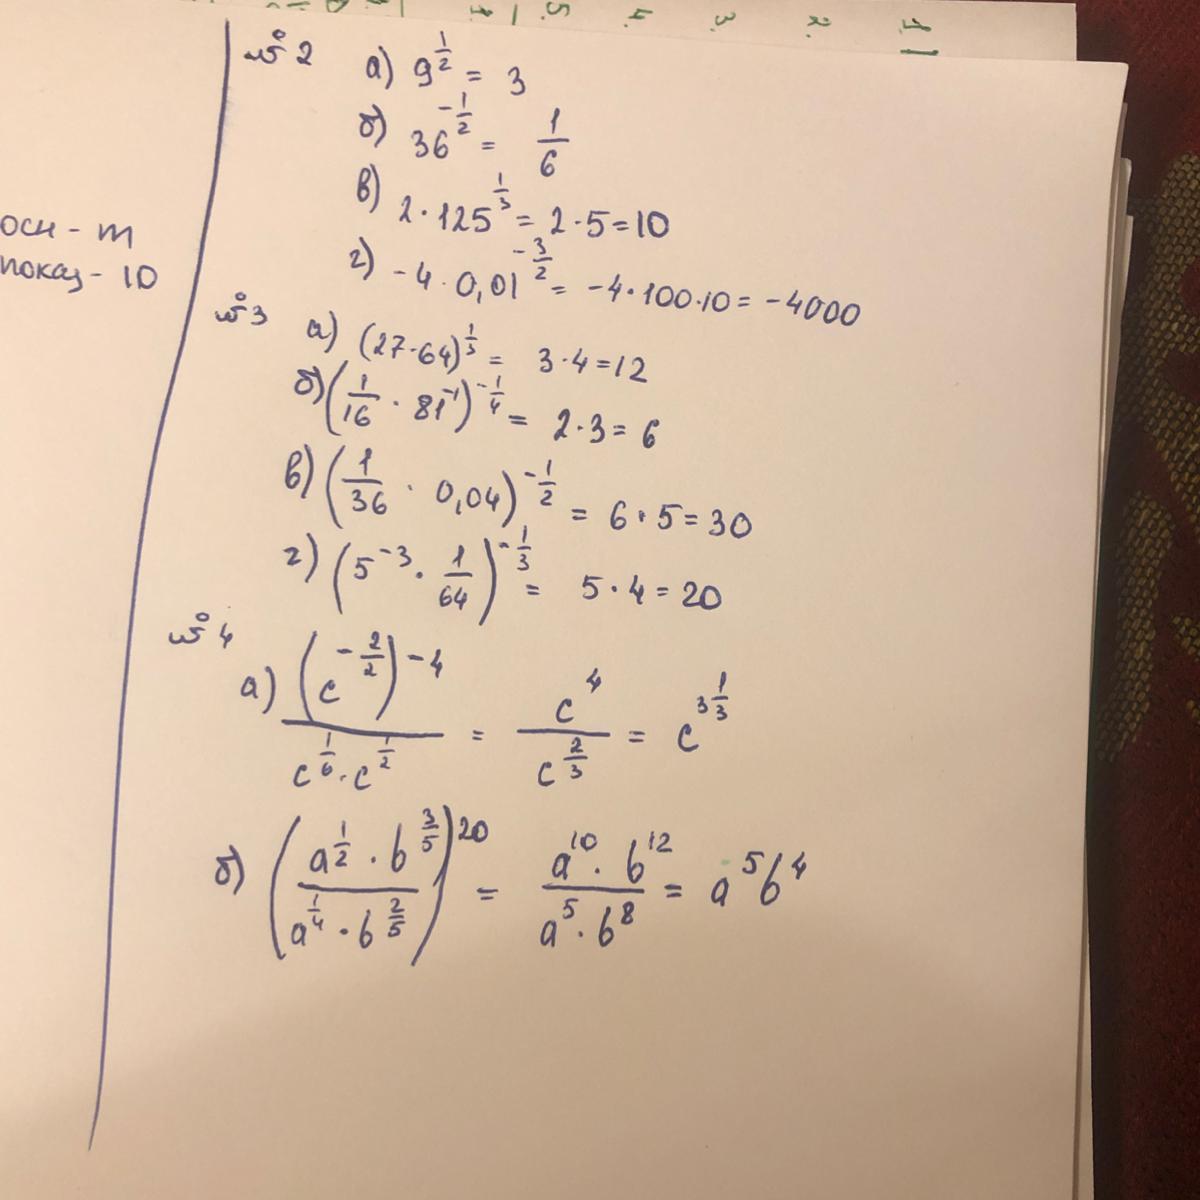 1.
2.
3.
4.
5.
осн - m
показ - 10
№ 2 а) 9^{1/2} = 3
б) 36^{-1/2} = 1/6
в) 2 · 125^{1/3} = 2 · 5 = 10
г) -4 · 0,01^{-3/2} = -4 · 100 · 10 = -4000
№ 3 а) (27 · 64)^{1/3} = 3 · 4 = 12
б) (1/16 · 81^{-1})^{-1/4} = 2 · 3 = 6
в) (1/36 · 0,04)^{-1/2} = 6 · 5 = 30
г) (5^{-3} · 1/64)^{-1/3} = 5 · 4 = 20
№ 4
а) (c^{-2/2})^{-4} / (c^{1/6} · c^{1/2}) = c^4 / c^{2/3} = c^{3 1/3}
б) ((a^{1/2} · b^{3/5}) / (a^{1/4} · b^{2/5}))^{20} = (a^{10} · b^{12}) / (a^5 · b^8) = a^5 b^4